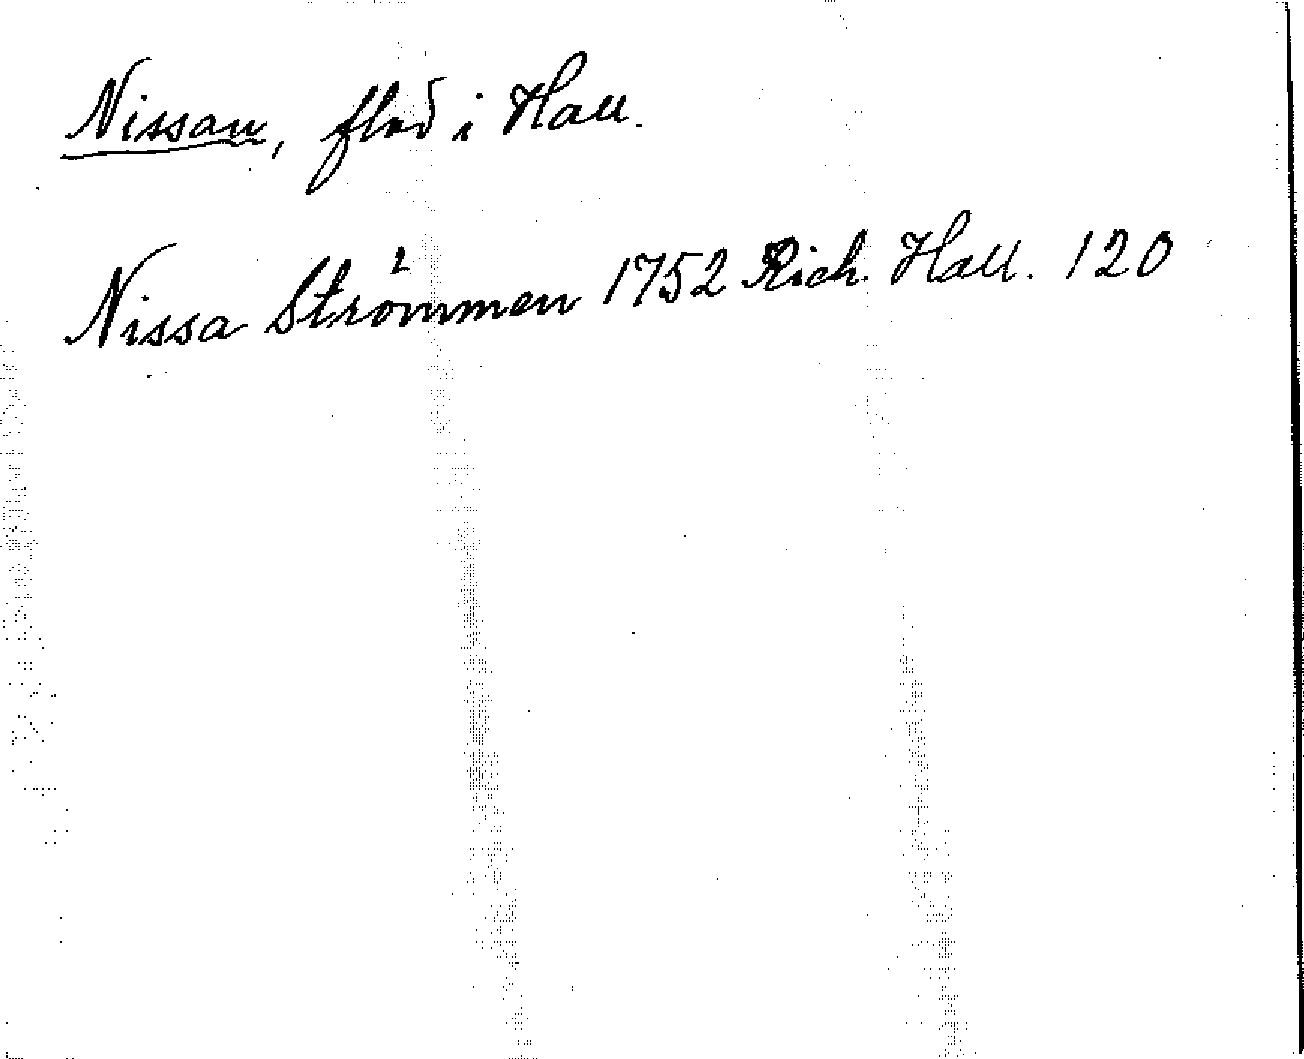 Nissan, flod i Hall.
Nissa Strömmen 1752 Rich. Hall. 120